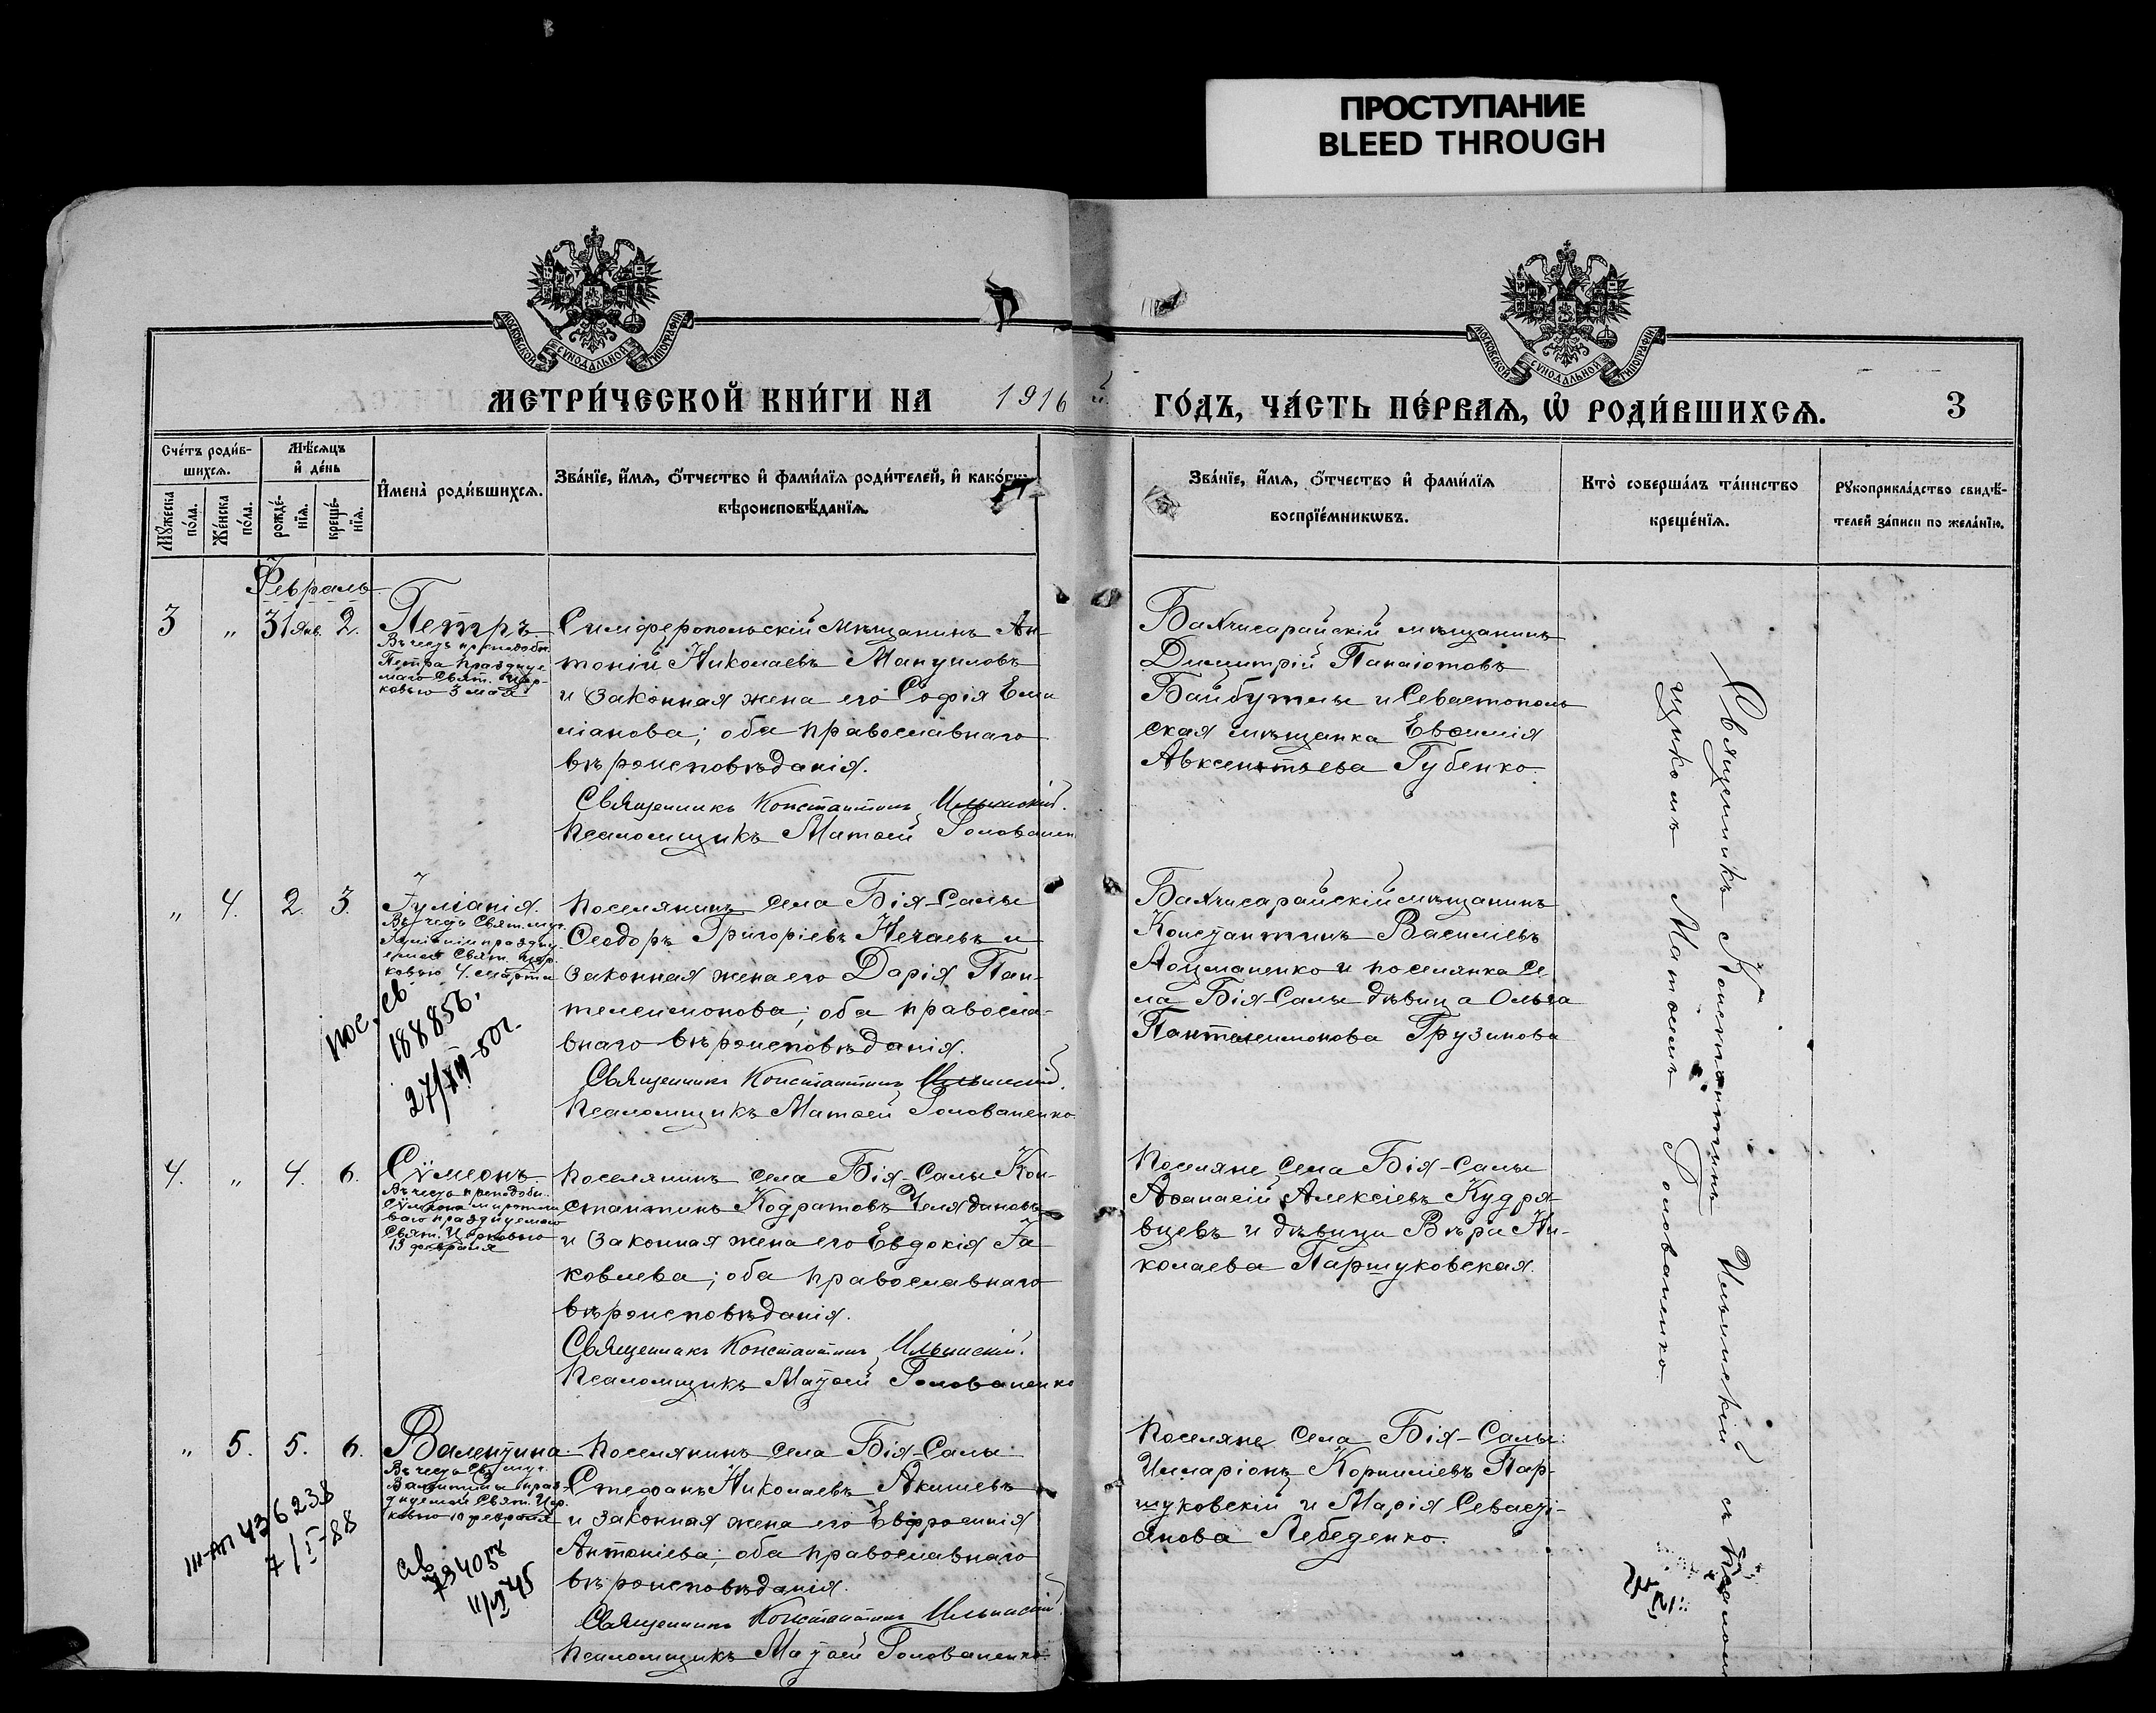 ПРОСТУПАНИЕ
BLEED THROUGH
МОСКОВСКОЙ СУНОДАЛЬНОЙ ТИПОГРАФІИ
МОСКОВСКОЙ СУНОДАЛЬНОЙ ТИПОГРАФІИ
МЕТРИ́ЧЕСКОЙ КНИ́ГИ НА 1916 й ГО́ДЪ, ЧА́СТЬ ПЕ́РВАѦ, Ѡ҆ РОДИ́ВШИХСѦ. 3
Сче́тъ роди́в-
шихсѧ.
Мꙋ́жеска
по́ла.
Же́нска
по́ла.
Мѣ́сѧцъ
и҆ де́нь
рожде́-
нїѧ.
креще́-
нїѧ.
И҆мена̀ роди́вшихсѧ.
Зва́нїе, и҆́мѧ, ѻ҆́тчество и҆ фами́лїѧ роди́телей, и҆ како́гѡ
вѣроисповѣ́данїѧ.
Зва́нїе, и҆́мѧ, ѻ҆́тчество и҆ фами́лїѧ
воспрїе́мникѡвъ.
Кто̀ соверша́лъ та́инство
креще́нїѧ.
Рꙋкоприкла́дство свидѣ́-
телей за́писи по жела́нїю.
Февраль
3 " 31 Янв. 2. Петръ.
Въ честь преподобн.
Петра празднуе
маго Свят. Цер-
ковью 3 мая
Симферопольскій мѣщанинъ Ан-
тоній Николаевъ Мануиловъ
и законная жена его Софія Еми
ліанова; оба православнаго
вѣроисповѣданія.
Священникъ Константинъ Ильинскій.
Псаломщикъ Матѳей Голованен
Бахчисарайскій мѣщанинъ
Димитрій Панаіотовъ
Байбутлы и Севастополь
ская мѣщанка Евѳимія
Авксентьева Губенко.
" 4. 2. 3. Іуліанія.
Въ честь Свят. муч.
Іуліаніи праздну-
емой Свят. Цер.
ковью 4 марта
пос. св.
188856.
Поселянинъ села Бія-Салы
Ѳеодоръ Григоріевъ Нечаевъ и
законная жена его Дарія Пан-
телеимонова; оба правосла-
внаго вѣроисповѣданія.
Священникъ Константинъ Ильинскій.
Псаломщикъ Матѳей Голованенко
Бахчисарайскій мѣщанинъ
Константинъ Василіевъ
Лоцманенко и поселянка се
ла Бія-Салы дѣвица Ольга
Пантелеимонова Грузинова
4. " 4. 6. Сѵмеонъ
Въ честь преподобн.
Сѵмеона мироточи
ваго празднуемаго
Свят. Церковью
13 февраля
Поселянинъ села Бія-Салы Кон-
стантинъ Кодратовъ Челядиновъ
и законная жена его Евдокія Іа
ковлева; оба православнаго
вѣроисповѣданія.
Священникъ Константинъ Ильинскій.
Псаломщикъ Матѳей Голованенко
Поселяне села Бія-Салы
Аѳанасій Алексіевъ Кудря-
вцевъ и дѣвица Вѣра Ни-
колаева Паршуковская.
" 5. 5. 6. Валентина.
Въ честь Св. муч.
Валентины праз-
днуемой Свят. Цер.
ковью 10 февраля
436238
7/I-88
Поселянинъ села Бія-Салы
Стефанъ Николаевъ Акишевъ
и законная жена его Евфросинія
Антоніева; оба православнаго
вѣроисповѣданія.
Священникъ Константинъ Ильинскій.
Псаломщикъ Матѳей Голованенко
Поселяне села Бія-Салы:
Илларіонъ Корниліевъ Пар-
шуковскій и Марія Севасті-
анова Лебеденко.
Священникъ Константинъ Ильинскій съ псалом
щикомъ Матѳеемъ Голованенко.